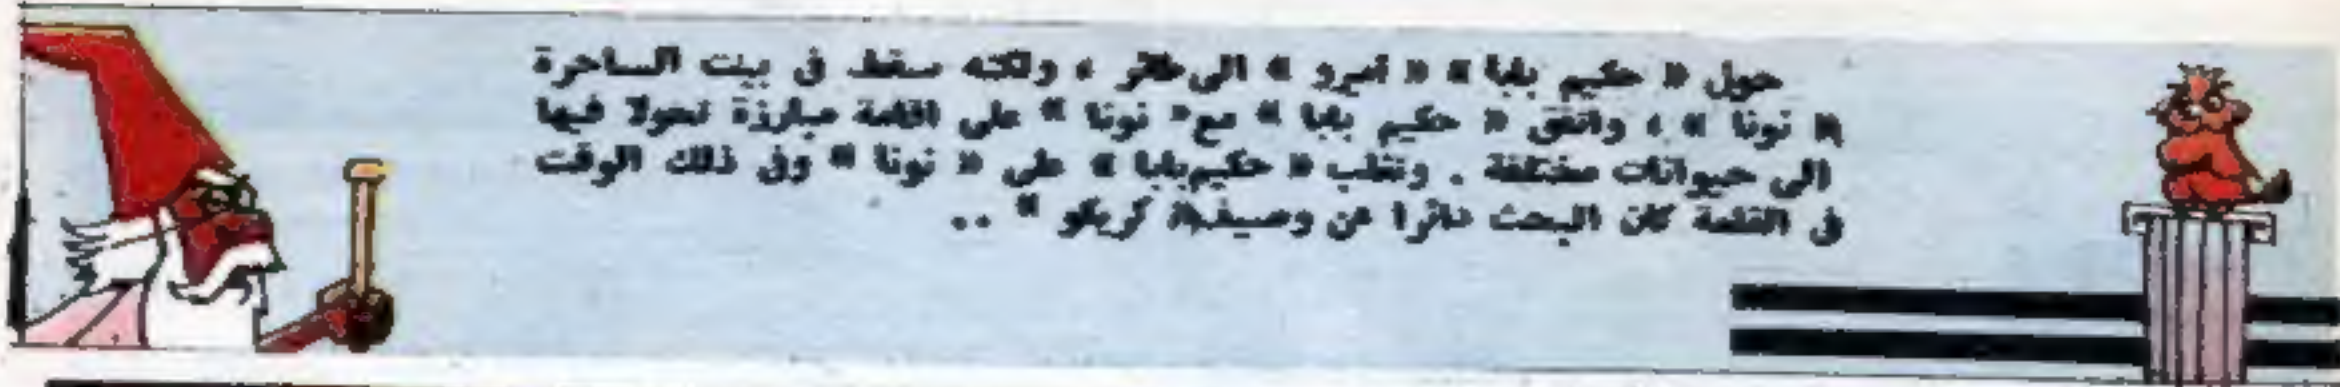 حول « حكيم بابا » « اميرو » الى طائر ، ولكنه سقط فى بيت الساحرة
« نونا » ، واتفق « حكيم بابا » مع « نونا » على اقامة مبارزة تحولا فيها
الى حيوانات مختلفة . وتغلب « حكيم بابا » على « نونا » وفى ذلك الوقت
فى القلعة كان البحث دائرا عن وصيفها « كريكو » ..